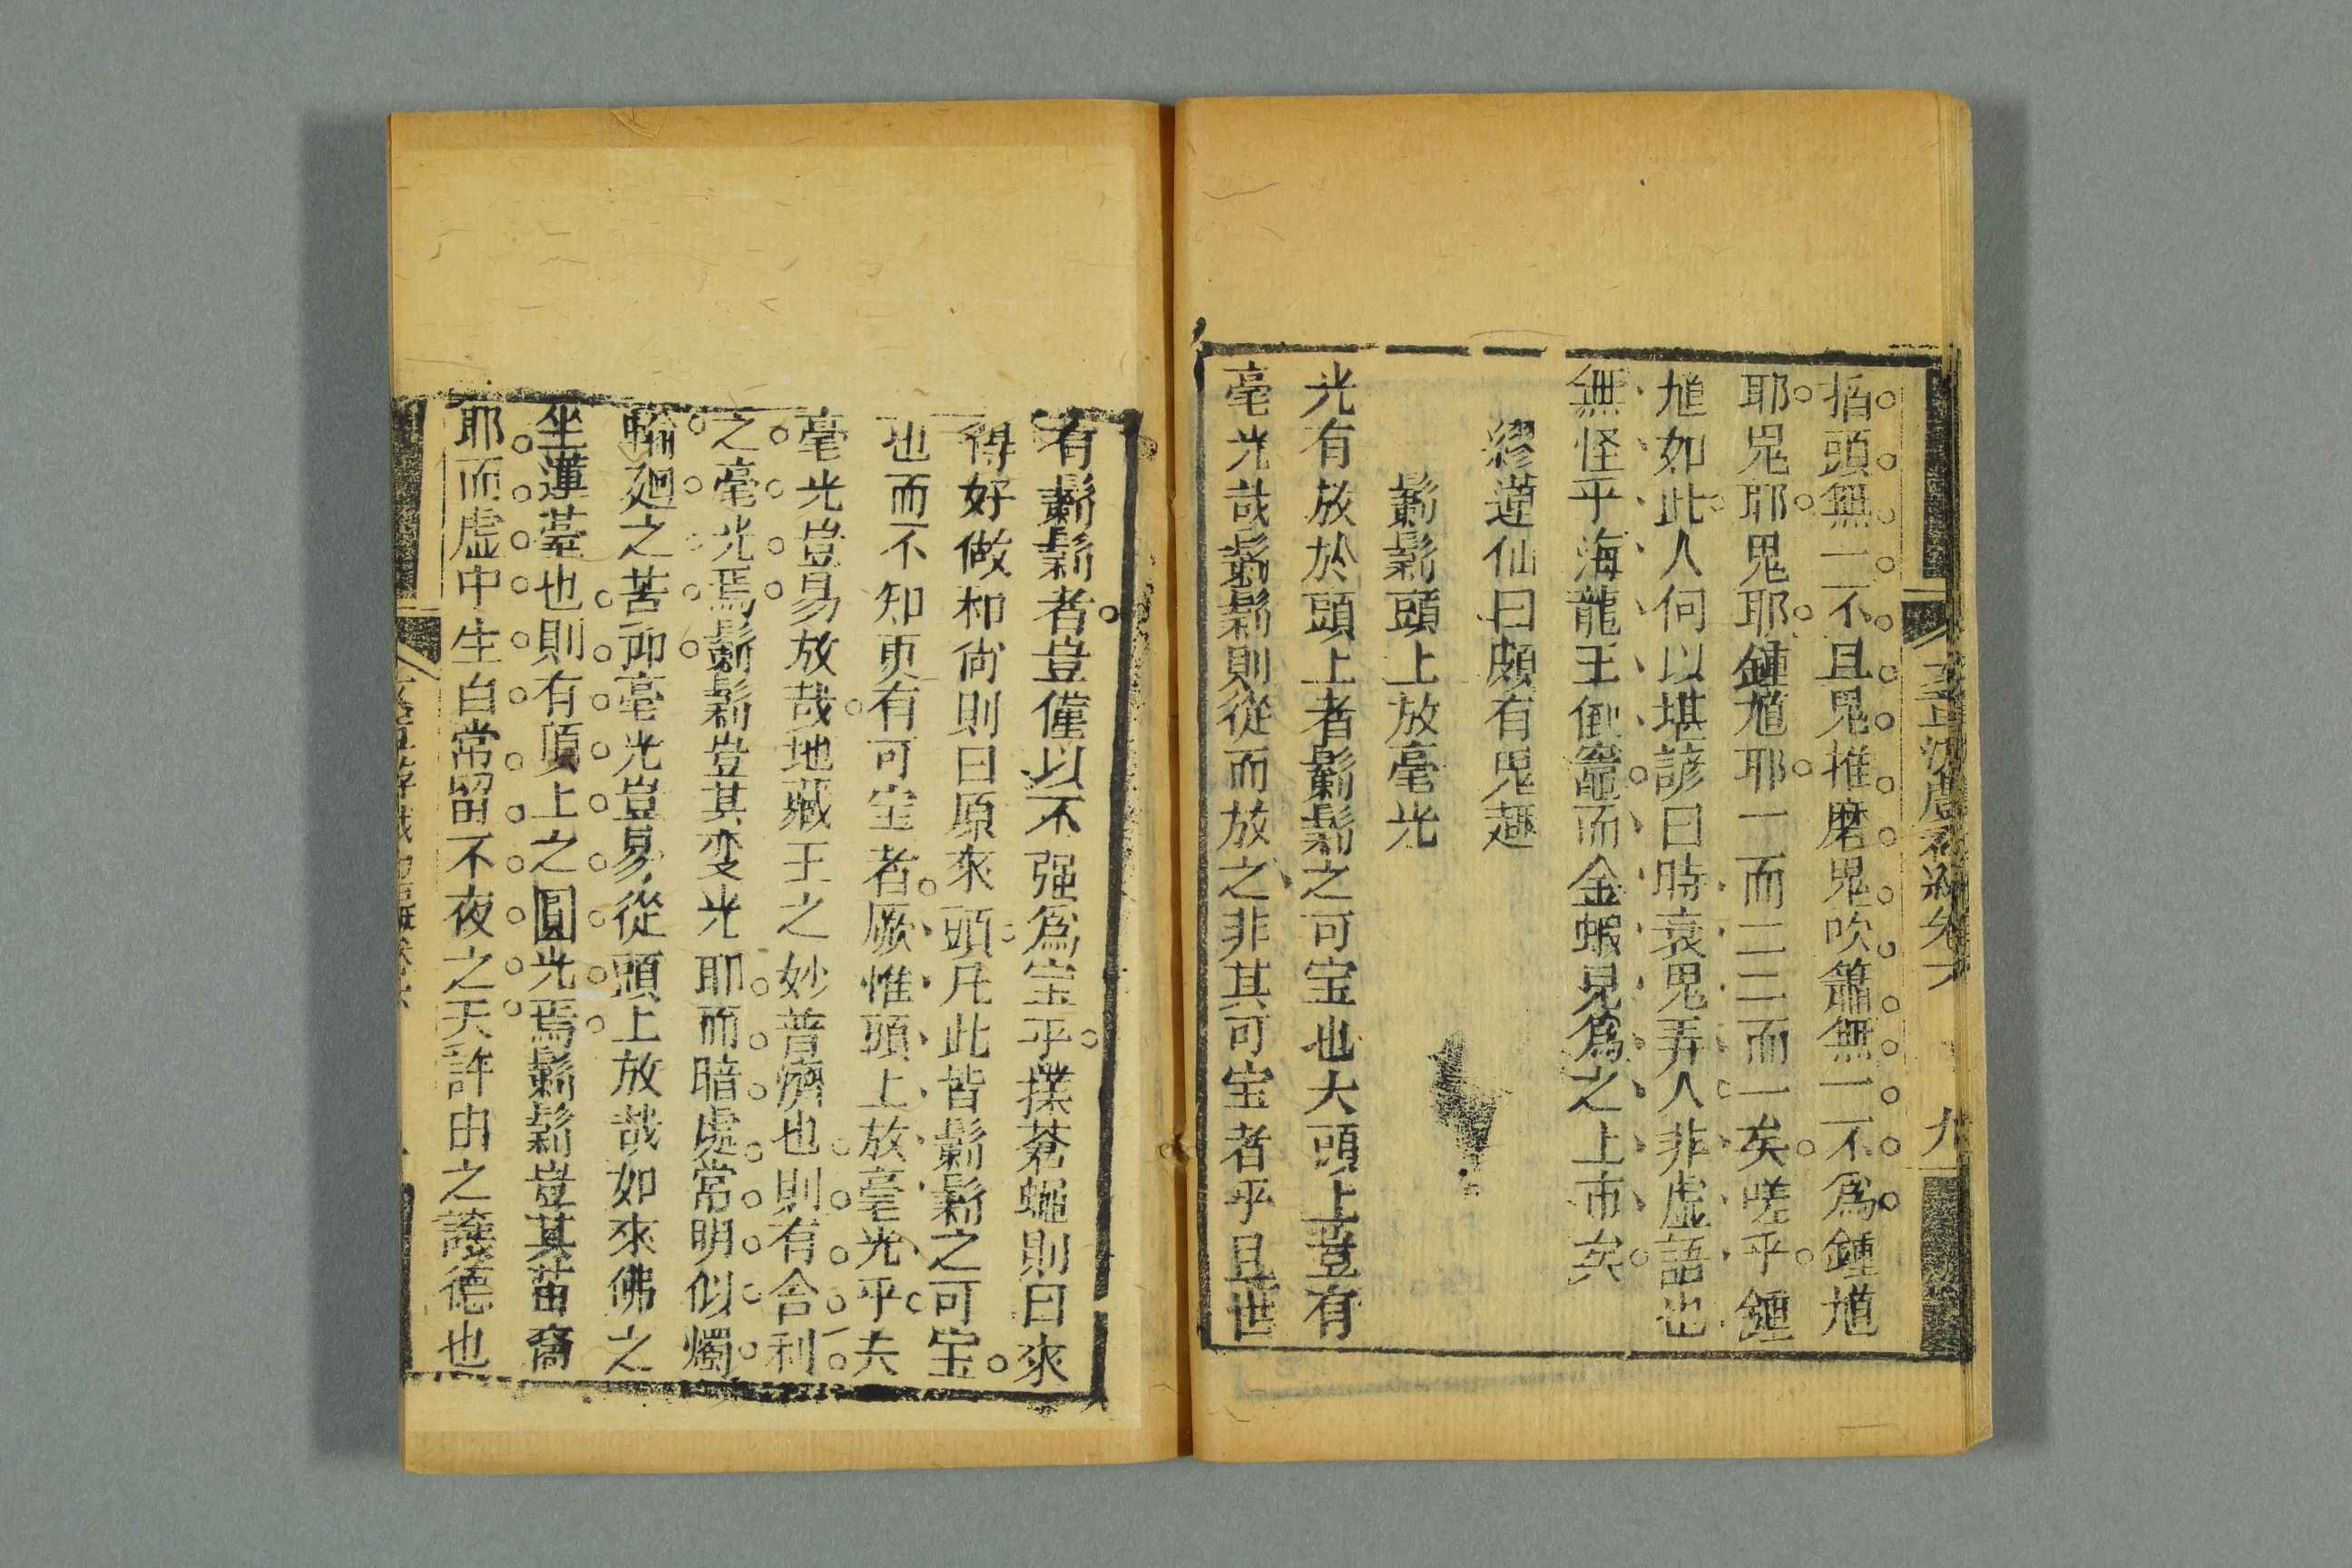 頭無一不且鬼推磨鬼吹簫無一不爲鍾馗
耶鬼耶鬼耶鍾馗耶一而二二而一矣嗟乎鍾
馗如此人何以堪諺曰時衰鬼弄人非虛語也
無怪乎海龍王倒竈而金蝦兒爲之上市矣
繆蓮仙曰頗有鬼趣
鬎鬎頭上放毫光
光有放於頭上者鬎鬎之可宝也大頭上豈有
毫光哉鬎鬎則從而放之非其可宝者乎且世
有鬎鬎者豈僅以不强爲宝乎撲蒼蠅則曰來
得好做和尙則曰原來頭凡此皆鬎鬎之可宝
也而不知更有可宝者厥惟頭上放毫光乎夫
毫光豈易放哉地藏王之妙普濟也則有舍利
之毫光焉鬎鬎豈其变光耶而暗處常明似燭
輪廻之苦卽毫光豈易從頭上放哉如來佛之
坐蓮臺也則有頂上之圓光焉鬎鬎豈其苗裔
耶而虛中生白常留不夜之天許由之讓德也
九